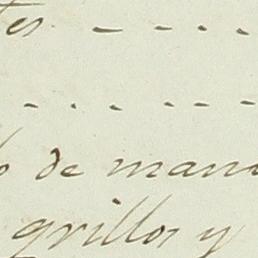 tes - - - .
- . . - - -
de mani
grillos y